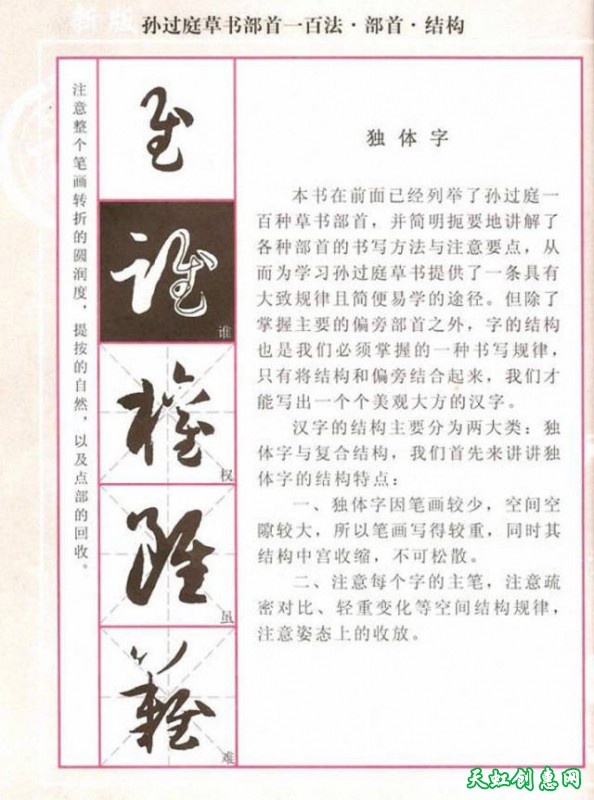 孙过庭草书部首一百法·部首·结构
注意整个笔画转折的圆润度，提按的自然，以及点部的回收。
谁
权
虽
难
独体字
本书在前面已经列举了孙过庭一
百种草书部首，并简明扼要地讲解了
各种部首的书写方法与注意要点，从
而为学习孙过庭草书提供了一条具有
大致规律且简便易学的途径。但除了
掌握主要的偏旁部首之外，字的结构
也是我们必须掌握的一种书写规律，
只有将结构和偏旁结合起来，我们才
能写出一个个美观大方的汉字。
汉字的结构主要分为两大类：独
体字与复合结构，我们首先来讲讲独
体字的结构特点：
一、独体字因笔画较少，空间空
隙较大，所以笔画写得较重，同时其
结构中宫收缩，不可松散。
二、注意每个字的主笔，注意疏
密对比、轻重变化等空间结构规律，
注意姿态上的收放。
天虹创惠网